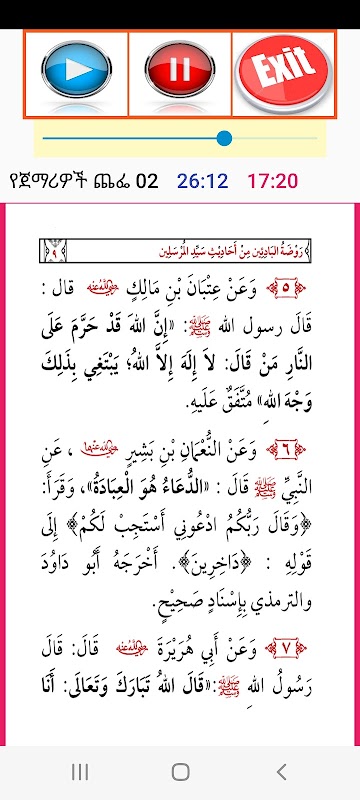 Exit
የጀማሪዎች ጨፌ 02 26:12 17:20
رَوْضَةُ البَادِئِين مِنْ أَحَادِيْثِ سَيِّدِ المُرْسَلِين ٩
﴿٥﴾ وَعَنْ عِتْبَانَ بْنِ مَالِكٍ رضي الله عنه قال :
قَالَ رسول الله ﷺ: «إِنَّ اللهَ قَدْ حَرَّمَ عَلَى
النَّارِ مَنْ قَالَ: لاَ إِلَهَ إِلاَّ اللهُ؛ يَبْتَغِي بِذَلِكَ
وَجْهَ اللهِ» مُتَّفَقٌ عَلَيهِ.
﴿٦﴾ وَعَنْ النُّعْمَانِ بْنِ بَشِيرٍ رضي الله عنهما ، عَنِ
النَّبِيِّ ﷺ قَالَ : «الدُّعَاءُ هُوَ الْعِبَادَةُ»، وَقَرَأَ:
﴿وَقَالَ رَبُّكُمُ ادْعُونِي أَسْتَجِبْ لَكُمْ﴾ إِلَى
قَوْلِهِ : ﴿دَاخِرِينَ﴾. أَخْرَجَهُ أَبُو دَاوُدَ
والترمذي بِإِسْنَادٍ صَحِيْحٍ.
﴿٧﴾ وَعَنْ أَبِي هُرَيْرَةَ رضي الله عنه قَالَ: قَالَ
رَسُولُ اللهِ ﷺ:«قَالَ اللهُ تَبَارَكَ وَتَعَالَى: أَنَا